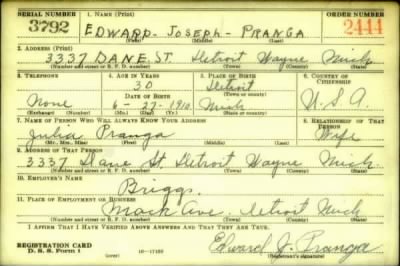 SERIAL NUMBER 1. NAME (Print) ORDER NUMBER
3792 EDWARD - JOSEPH - PRANGA 2444
(First) (Middle) (Last)
2. ADDRESS (Print)
3337 DANE ST. Detroit Wayne Mich
(Number and street or R. F. D. number) (Town) (County) (State)
3. TELEPHONE 4. AGE IN YEARS 5. PLACE OF BIRTH 6. COUNTRY OF CITIZENSHIP
30 Detroit
None DATE OF BIRTH (Town or county) U.S.A.
6 - 27 - 1910 Mich
(Exchange) (Number) (Mo.) (Day) (Yr.) (State or country)
7. NAME OF PERSON WHO WILL ALWAYS KNOW YOUR ADDRESS 8. RELATIONSHIP OF THAT PERSON
Julia Pranga Wife
(Mr., Mrs., Miss) (First) (Middle) (Last)
9. ADDRESS OF THAT PERSON
3337 Dane St. Detroit Wayne Mich.
(Number and street or R. F. D. number) (Town) (County) (State)
10. EMPLOYER'S NAME
Briggs
11. PLACE OF EMPLOYMENT OR BUSINESS
Mack Ave. Detroit Mich
(Number and street or R. F. D. number) (Town) (County) (State)
I AFFIRM THAT I HAVE VERIFIED ABOVE ANSWERS AND THAT THEY ARE TRUE.
REGISTRATION CARD
D. S. S. Form 1 16-17105 Edward J. Pranga
(Registrant's signature)